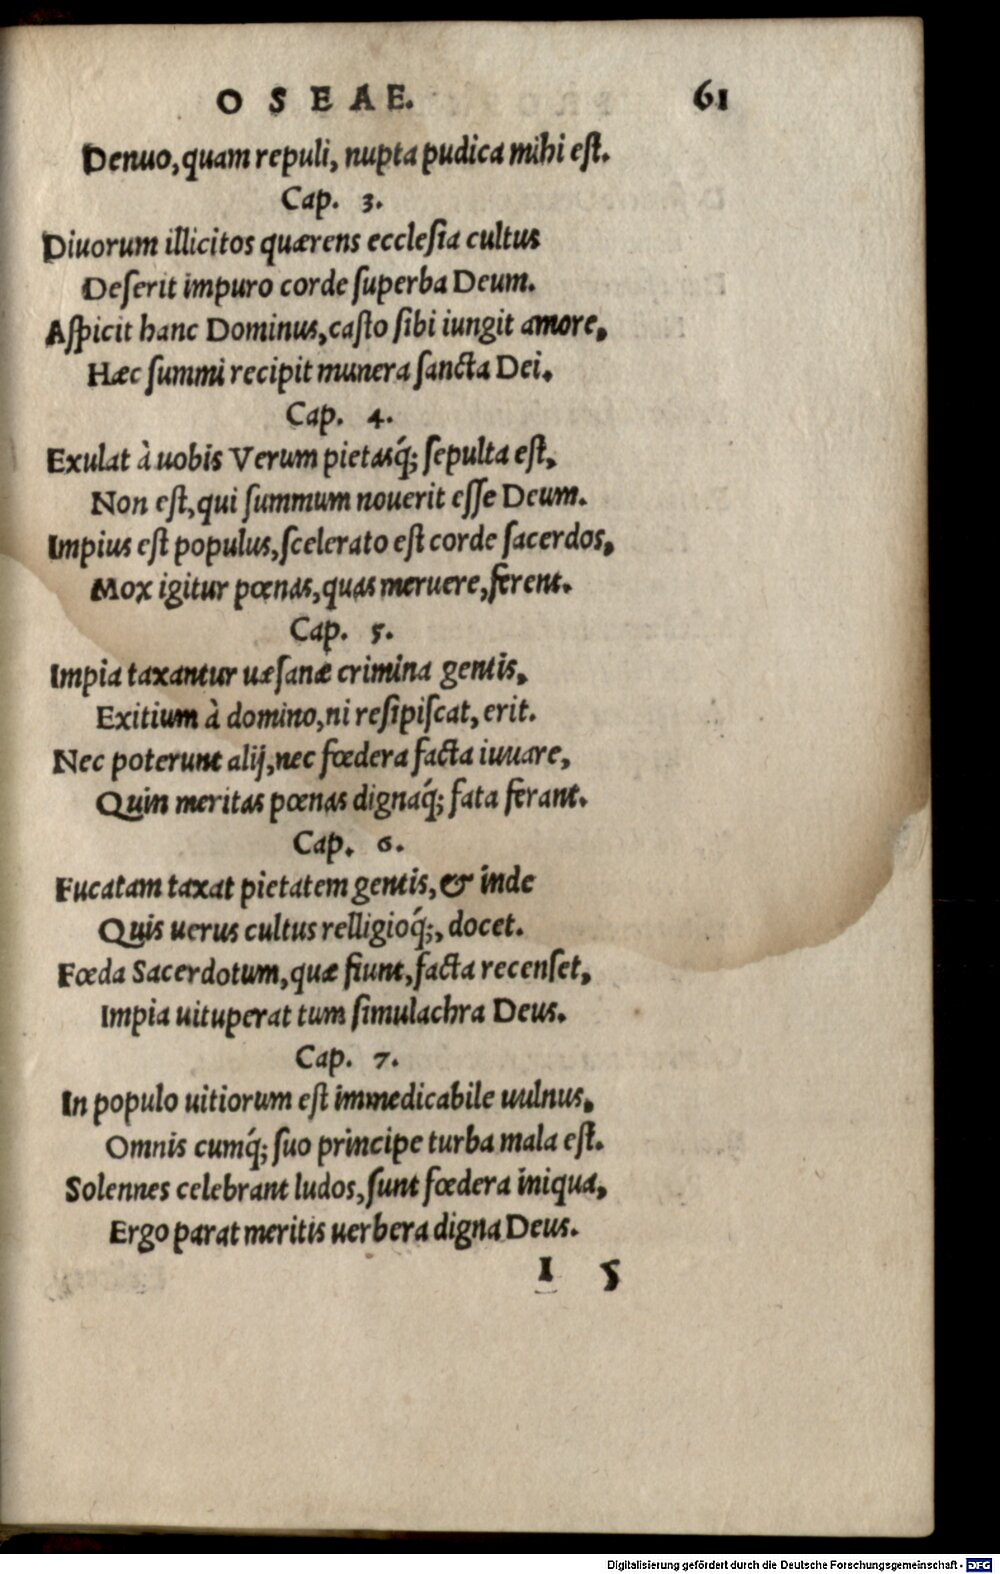 OSEAE. 61
Denuo, quam repuli, nupta pudica mihi eſt.
Cap. 3.
Diuorum illicitos quærens eccleſia cultus
Deſerit impuro corde ſuperba Deum.
Aſpicit hanc Dominus, caſto ſibi iungit amore,
Hæc ſummi recipit munera ſancta Dei.
Cap. 4.
Exulat à uobis Verum pietasq́; ſepulta eſt,
Non eſt, qui ſummum nouerit eſſe Deum.
Impius eſt populus, ſcelerato eſt corde ſacerdos,
Mox igitur pœnas, quas meruere, ferent.
Cap. 5.
Impia taxantur uæſanæ crimina gentis,
Exitium à domino, ni reſipiſcat, erit.
Nec poterunt alij, nec fœdera facta iuuare,
Quin meritas pœnas dignaq́; fata ferant.
Cap. 6.
Fucatam taxat pietatem gentis, & inde
Quis uerus cultus relligioq́;, docet.
Fœda Sacerdotum, quæ fiunt, facta recenſet,
Impia uituperat tum ſimulachra Deus.
Cap. 7.
In populo uitiorum eſt immedicabile uulnus,
Omnis cumq́; ſuo principe turba mala eſt.
Solennes celebrant ludos, ſunt fœdera iniqua,
Ergo parat meritis uerbera digna Deus.
I 5
Digitalisierung gefördert durch die Deutsche Forschungsgemeinschaft - DFG